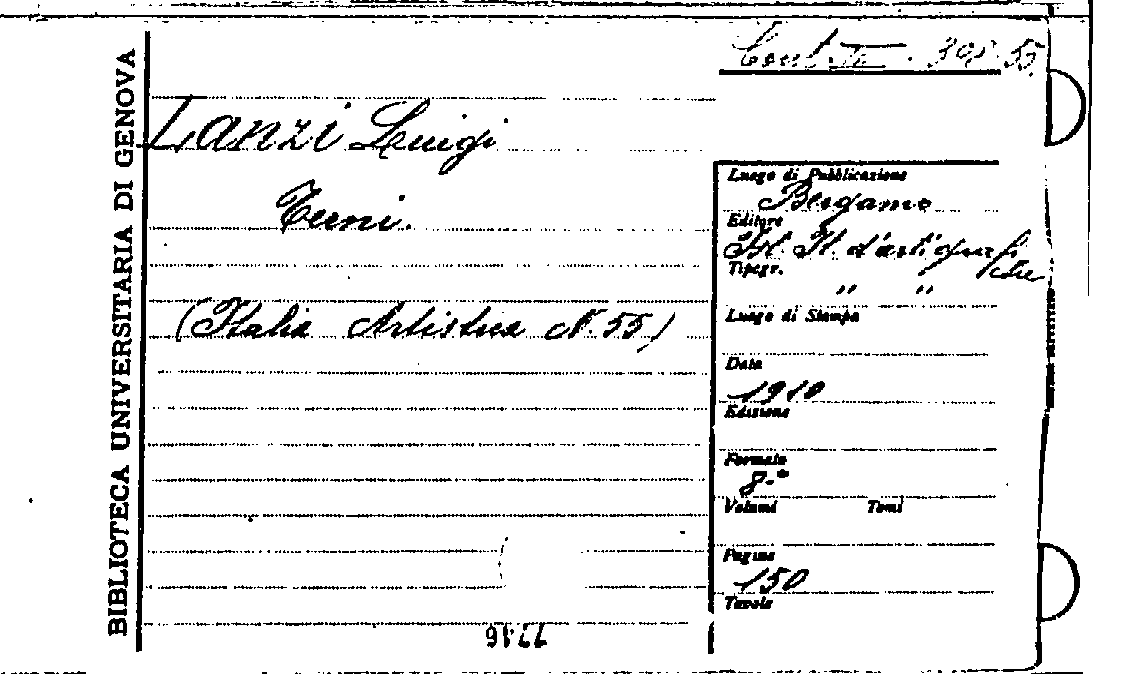 BIBLIOTECA UNIVERSITARIA DI GENOVA
LANZI Luigi
Terni.
(Italia Artistica N. 55)
Luogo di Pubblicazione
Bergamo
Editore
Ist. It. d'arti grafiche
Tipogr.
" "
Luogo di Stampa
Data
1910
Edizione
Formato
8.°
Volumi Tomi
Pagine
150
Tavole